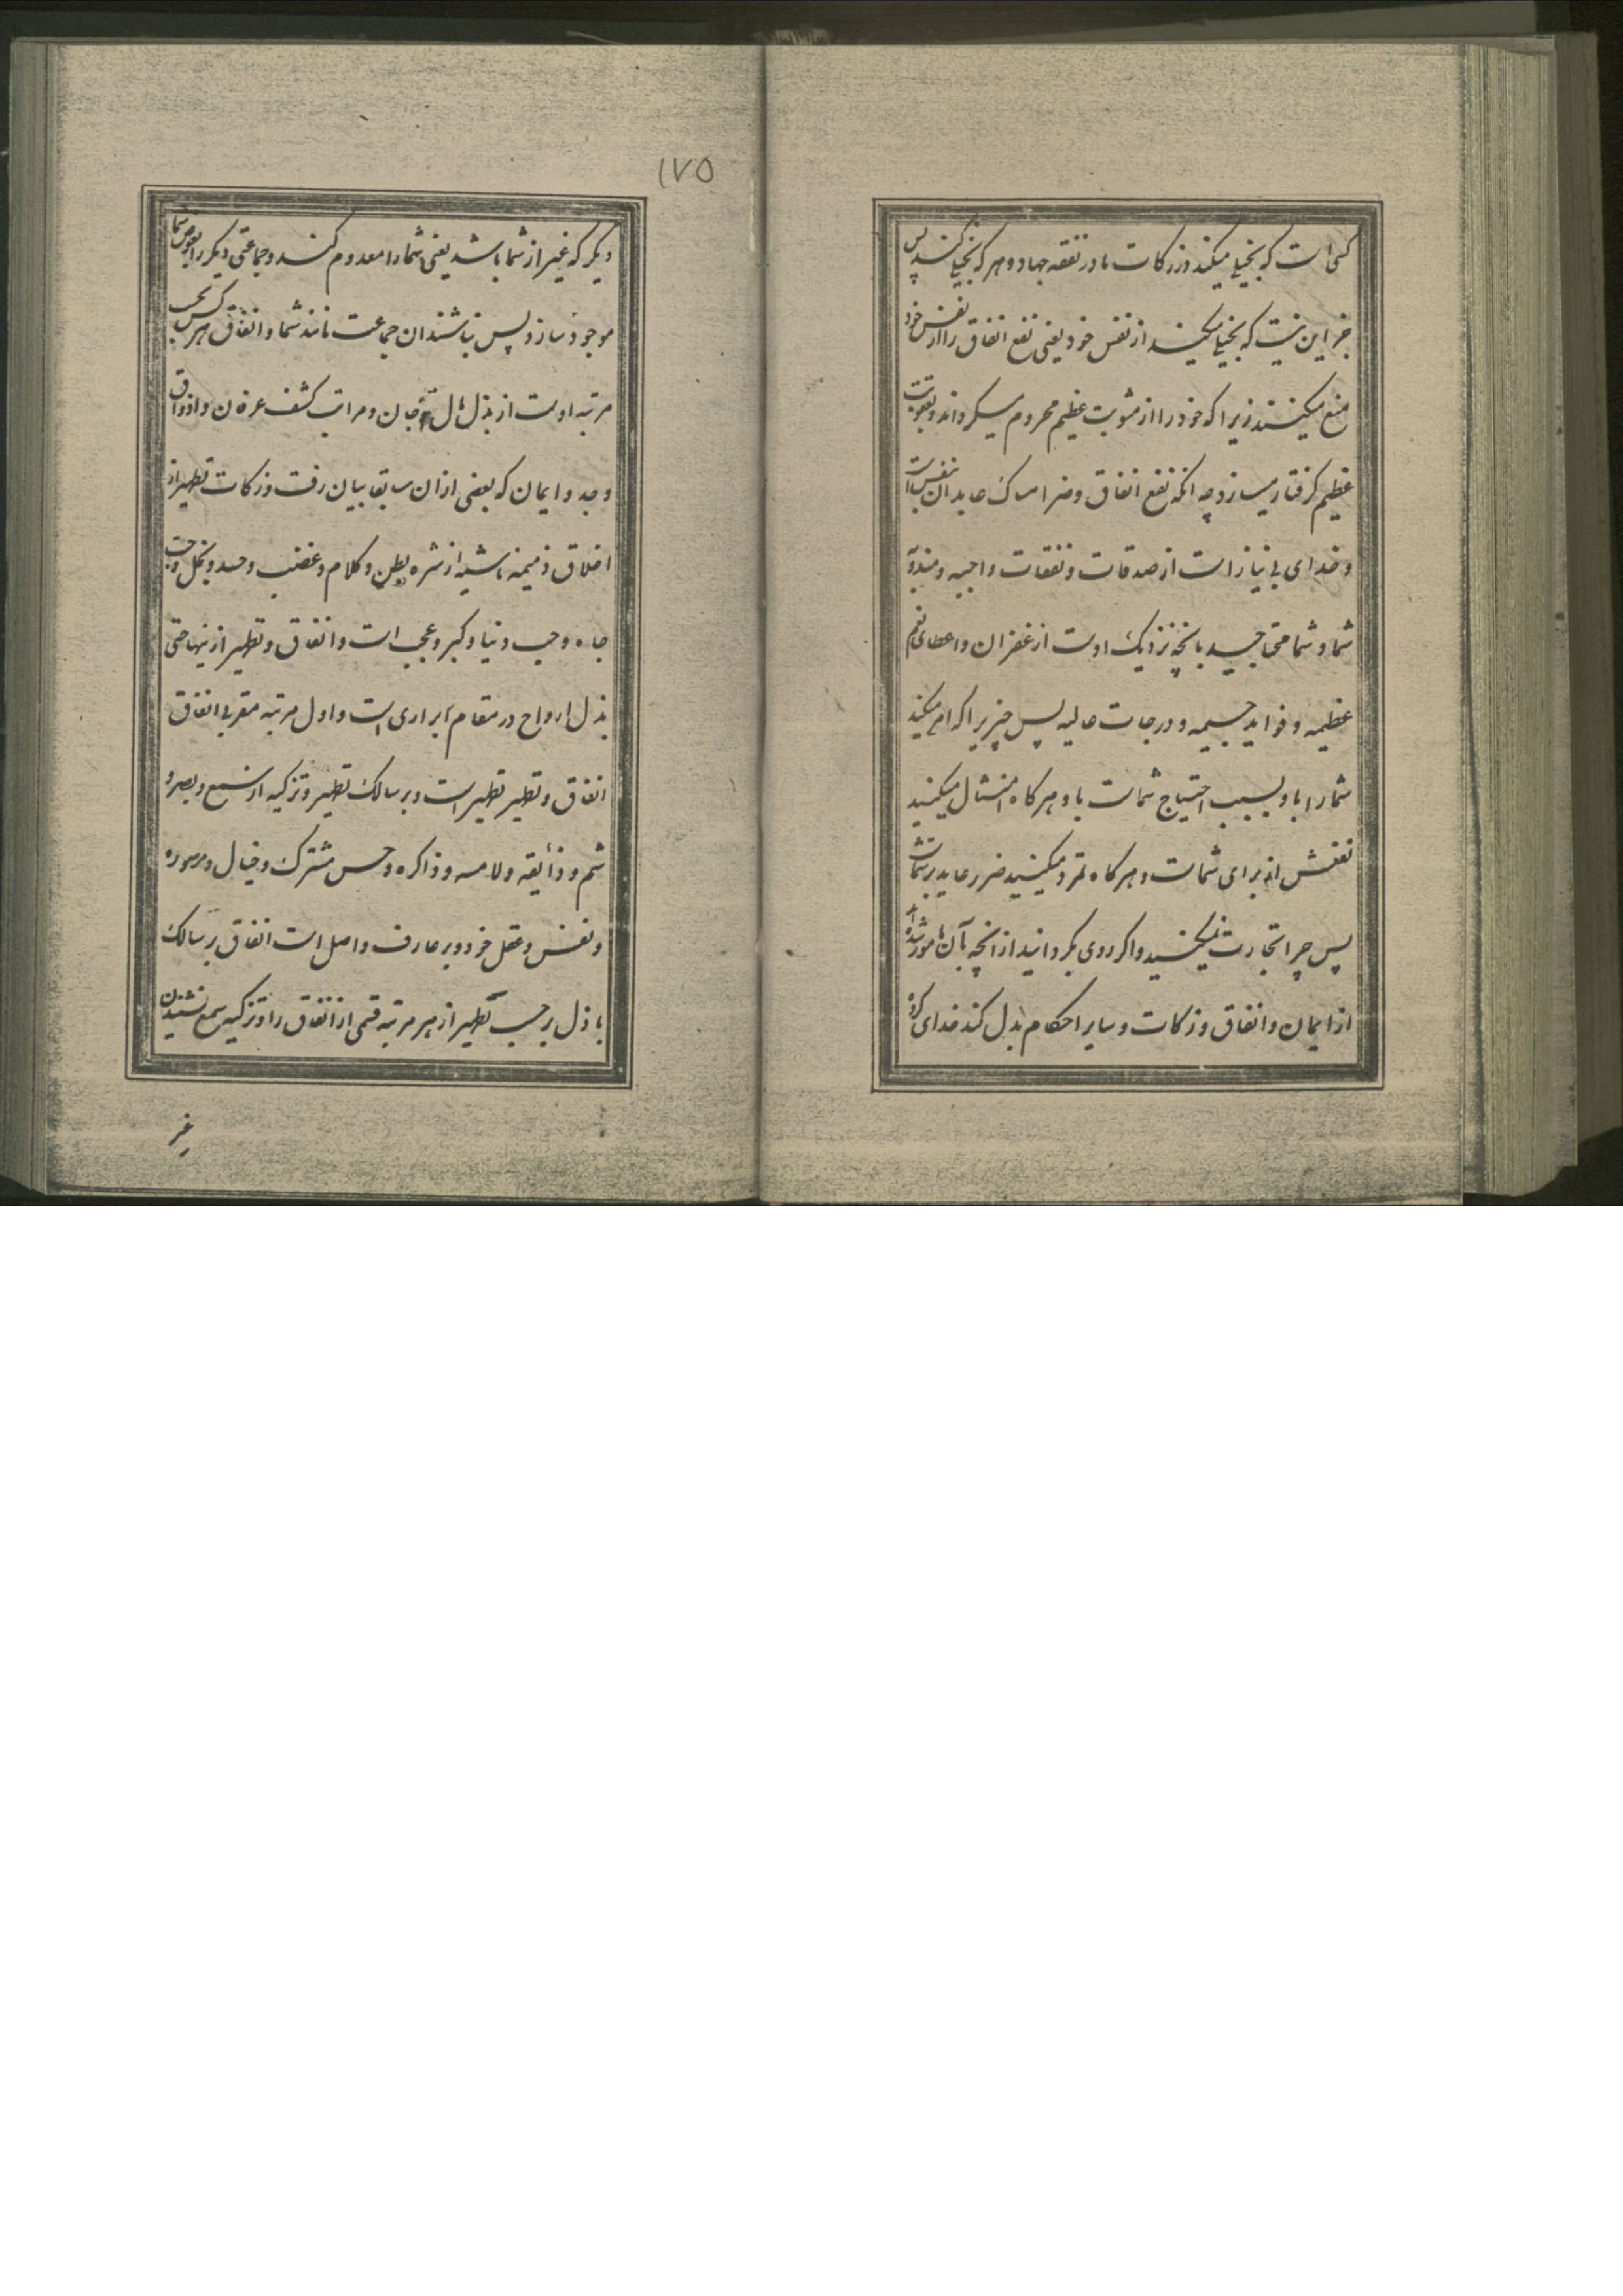 کسی است که بخیلی میکند در زکات یا در نفقه جهاد و هر که بخیلی کند پس
جز این نیست که بخیلی میکند از نفس خود یعنی نفع انفاق را از نفس خود
منع میکنند زیرا که خود را از مثوبت عظیم محروم میگرداند و بعقوبت
عظیم گرفتار میسازد چه انکه نفع انفاق و ضر امساک عاید ان نفس است
و خدای بی نیاز است از صدقات و نفقات واجبه و مندوبه
شما و شما محتاجید بانچه نزدیک اوست از غفران و اعطای نعم
عظیمه و فواید جسیمه و درجات عالیه پس چیزیرا که امر میکند
شما را باو بسبب احتیاج شماست باو هرگاه امتثال میکنید
نفعش از برای شماست و هرگاه تمرد میکنید ضرر عاید بر شماست
پس چرا تجارت نمیکنید و اگر روی بگردانید از انچه بآن مامور شده اید
از ایمان و انفاق و زکات و سایر احکام بدل کند خدای گروه
۱۷۵
دیگر که غیر از شما باشد یعنی شما را معدوم کند و جماعتی دیگر را بعوض شما
موجود سازد پس نباشند ان جماعت مانند شما و انفاق هرکس بحسب
مرتبه اوست از بذل مال و جان و مراتب کشف عرفان و اذواق
وجد و ایمان که بعضی از ان سابقا بیان رفت و زکات تطهیر از
اخلاق ذمیمه ناشیه از شره بطن و کلام و غضب و حسد و بخل و حب
جاه و حب دنیا و کبر و عجب است و انفاق و تطهیر ازینها حتی
بذل ارواح در مقام ابراری است و اول مرتبه مقربی انفاق
انفاق و تطهیر تطهیر است و بر سالک تطهیر و تزکیه از سمع و بصر و
شم و ذایقه و لامسه و ذاکره و حس مشترک و خیال و مصوره
و نفس و عقل خود و بر عارف واصل است انفاق بر سالک
باذل بر حسب تطهیر از هر مرتبه قسمی از انفاق را و تزکیه سمع نشنیدن
غیر